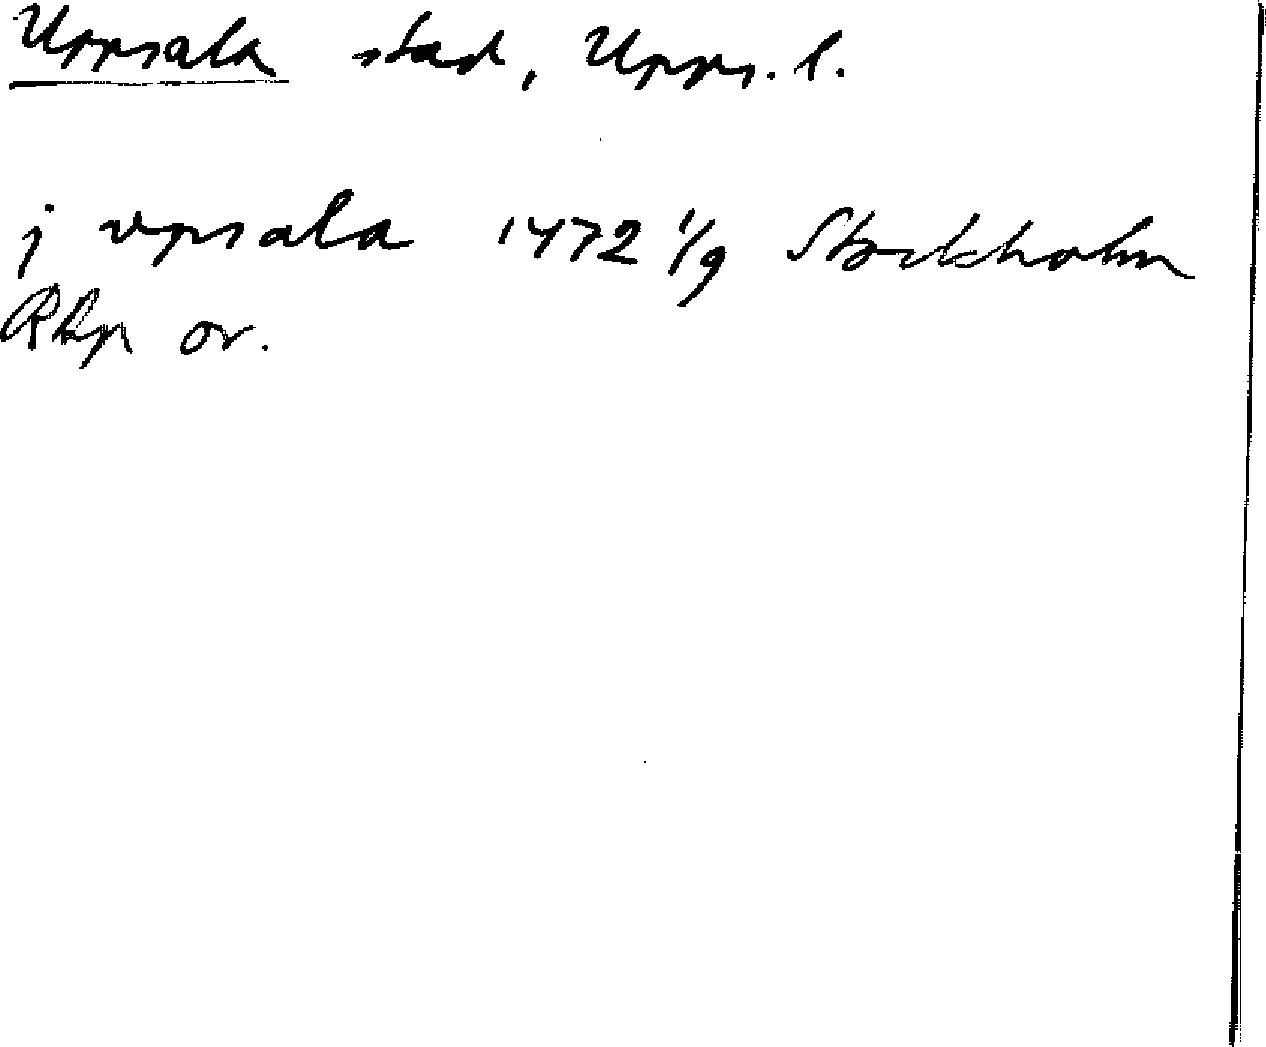 Uppsala stad, Upps. l.
j vpsala 1472 1/9 Stockholm
RAp or.